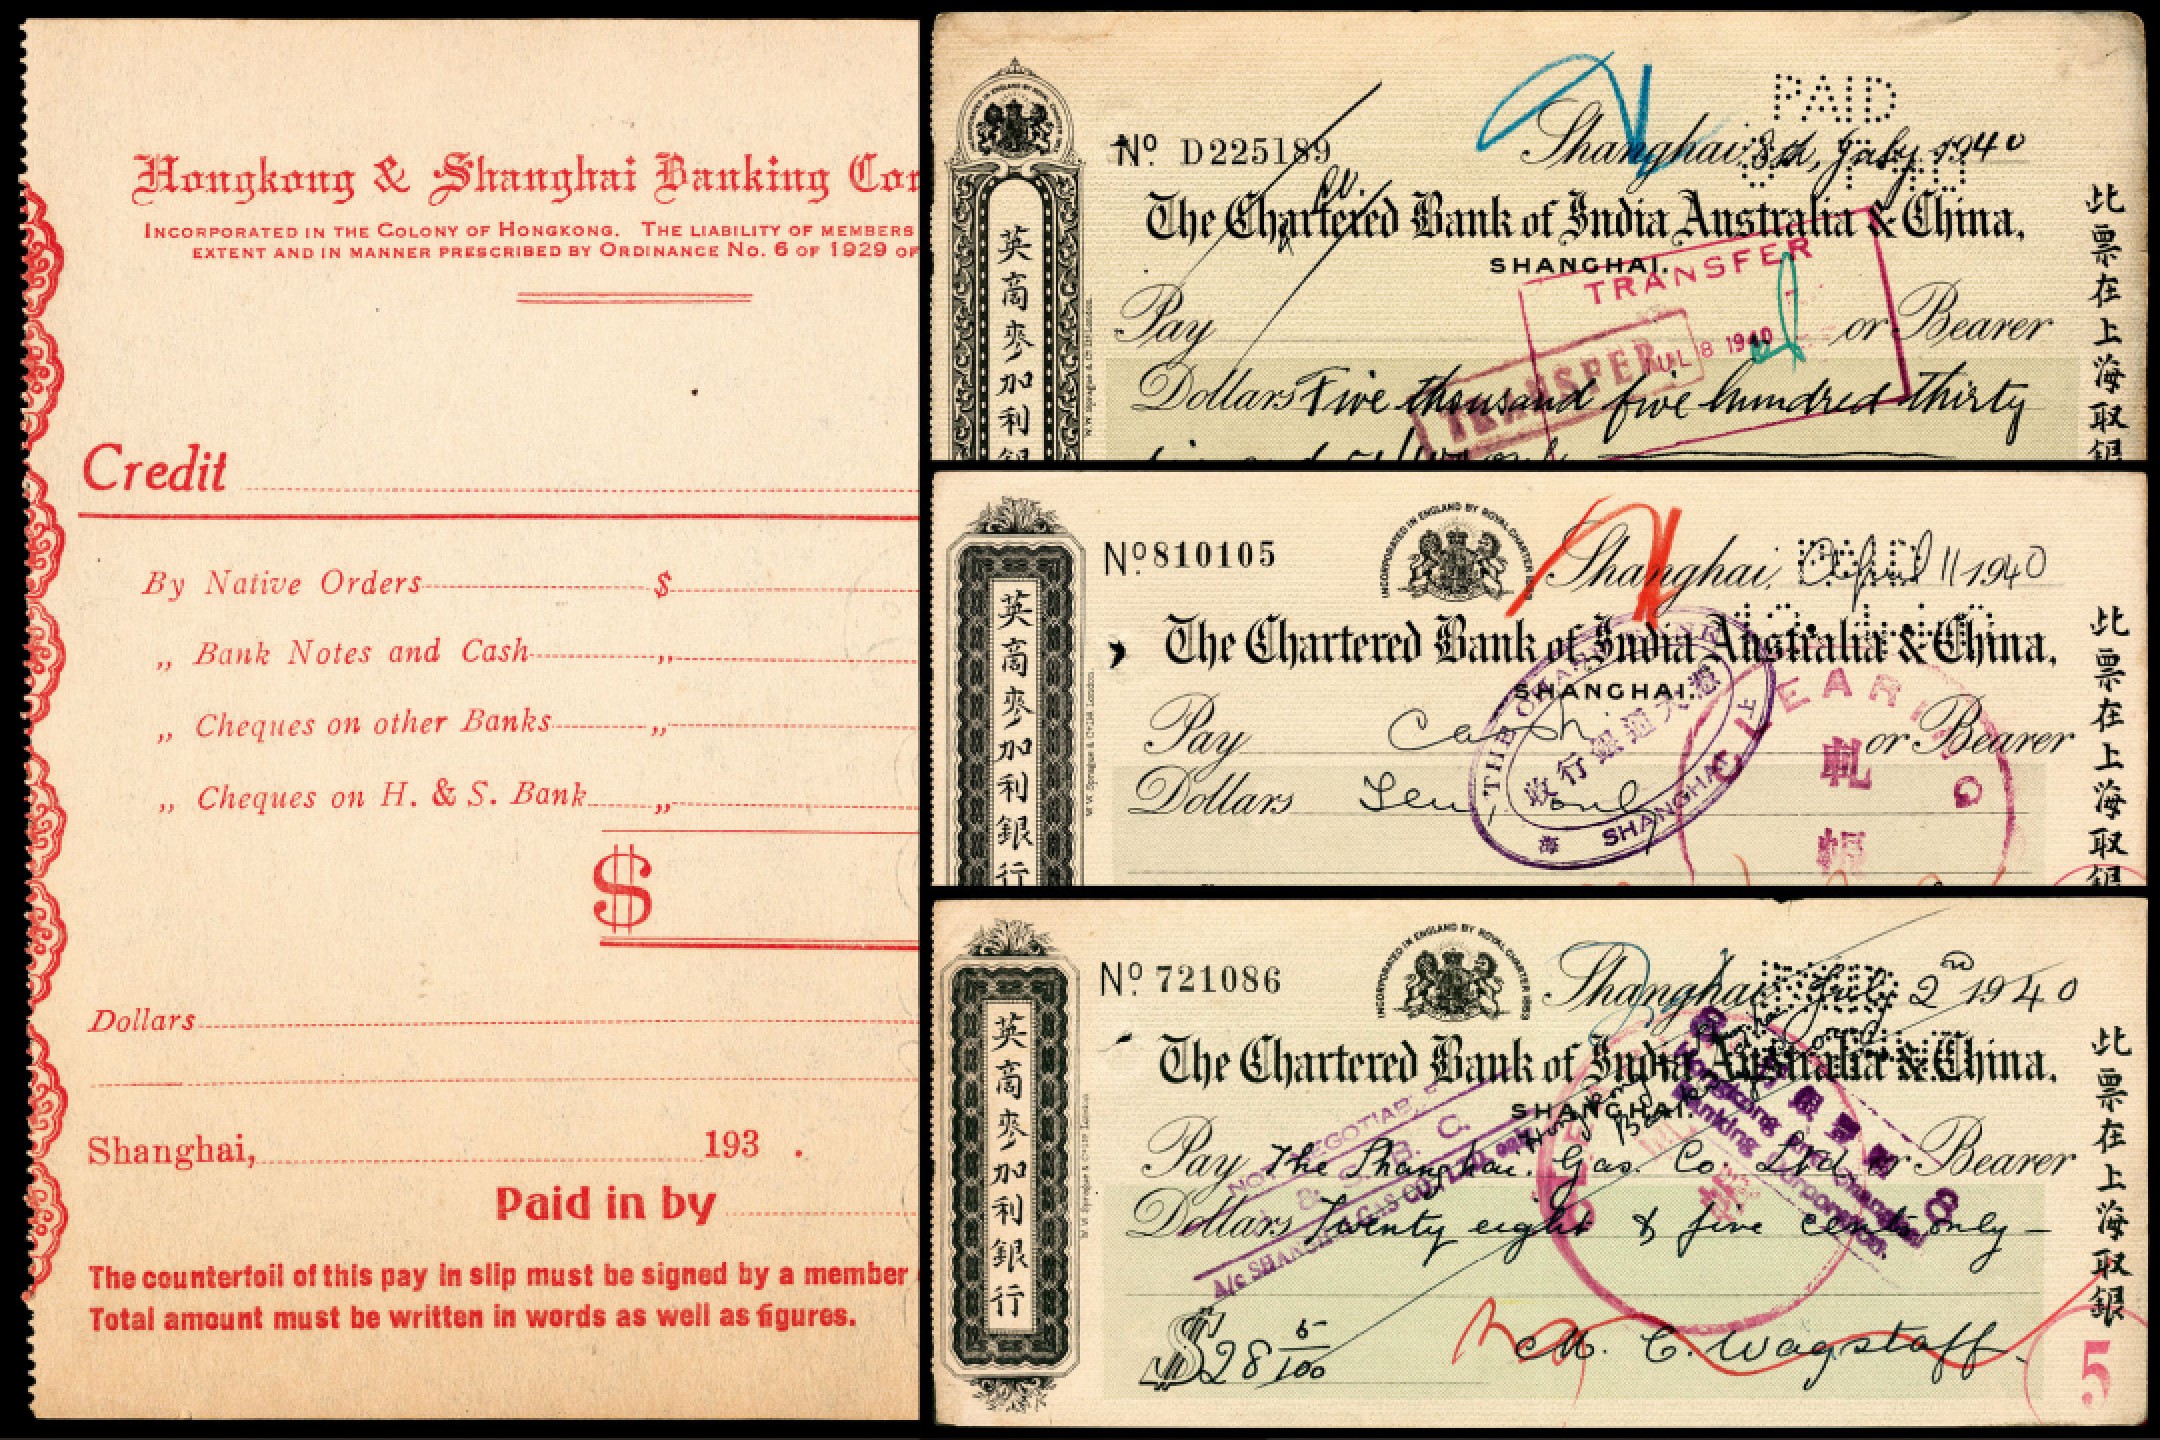 Hongkong & Shanghai Banking Cor
INCORPORATED IN THE COLONY OF HONGKONG. THE LIABILITY OF MEMBERS
EXTENT AND IN MANNER PRESCRIBED BY ORDINANCE No. 6 OF 1929 OF
Credit
By Native Orders $
„ Bank Notes and Cash „
„ Cheques on other Banks „
„ Cheques on H. & S. Bank „
$
Dollars
Shanghai, 193 .
Paid in by
The counterfoil of this pay in slip must be signed by a member
Total amount must be written in words as well as figures.
INCORPORATED IN ENGLAND BY ROYAL CHARTER
英商麥加利銀
W.W. Sprague & Co Ltd London.
PAID
No. D225189
Shanghai 3d, July 1940
The Chartered Bank of India Australia & China,
SHANGHAI.
TRANSFER
Pay or Bearer
JUL 8 1940
TRANSFER
Dollars Five thousand five hundred thirty
此票在上海取銀
英商麥加利銀行
W.W. Sprague & Co Ltd. London.
No 810105
INCORPORATED IN ENGLAND BY ROYAL CHARTER
Shanghai, April 11 1940
The Chartered Bank of India Australia & China,
SHANGHAI.
Pay Cash or Bearer
Dollars Ten only
THE CHASE BANK
SHANGHAI
上海
大通銀行收
CLEARING
此票在上海取銀
英商麥加利銀行
W.W. Sprague & Co Ltd London
No. 721086
INCORPORATED IN ENGLAND BY ROYAL CHARTER 1853
Shanghai July 2nd 1940
The Chartered Bank of India Australia & China,
SHANGHAI.
Pay The Shanghai Gas Co Ltd or Bearer
Dollars Twenty eight & five cents only
$28 5/100
M. C. Wagstaff.
NOT NEGOTIABLE
A/c SHANGHAI GAS CO. LTD. only
Hongkong and Shanghai
Banking Corporation.
此票在上海取銀
5